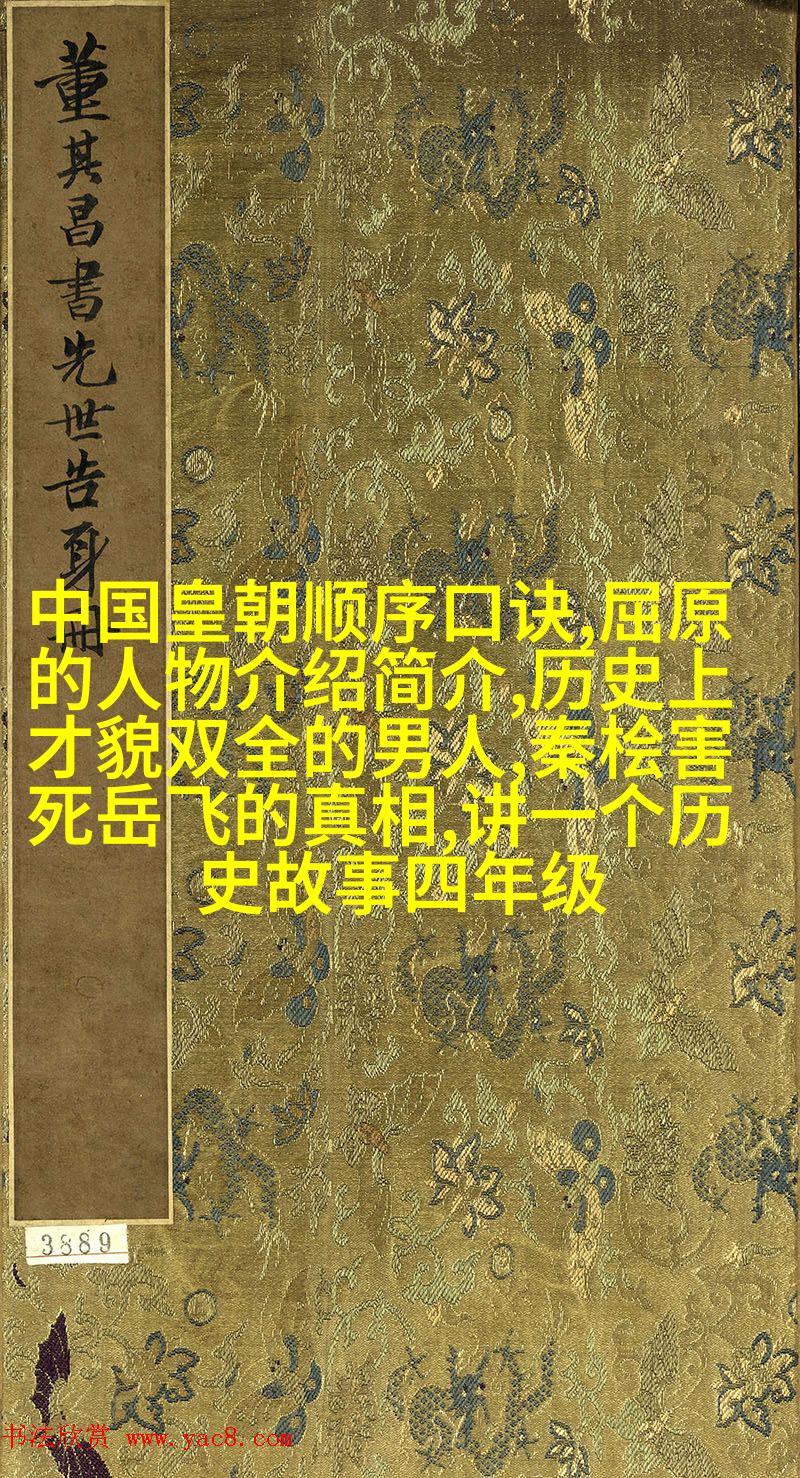 董其昌书先世告身册
中国皇朝顺序口诀,屈原
的人物介绍简介,历史上
才貌双全的男人,秦桧害
死岳飞的真相,讲一个历
史故事四年级
3889
书法欣赏 www.yac8.com